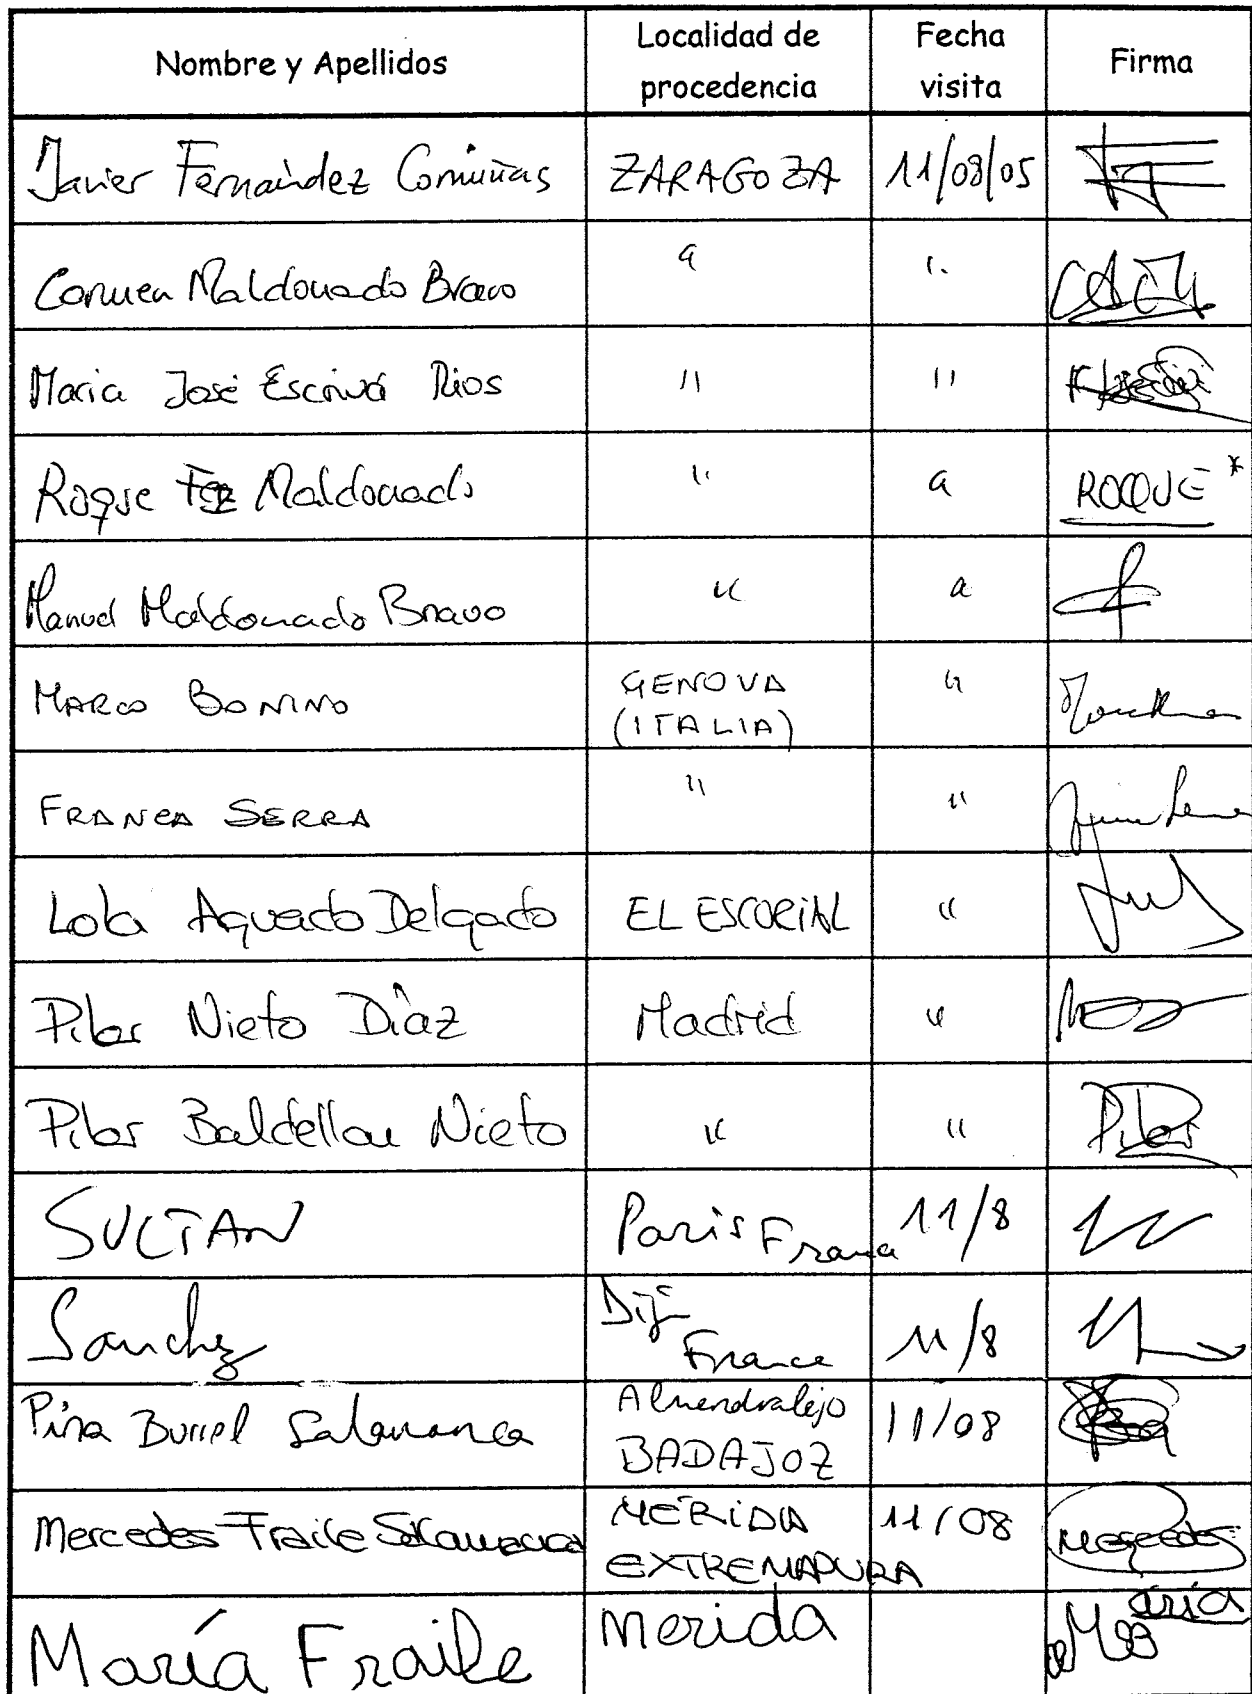 Nombre y Apellidos Localidad de procedencia Fecha visita Firma
Javier Fernández ZARAGOZA 11/08/05
Carmen Maldonado Bravo " "
Maria José Escrivá Rios " "
Roque Fez Maldonado " " ROQUE *
Manuel Maldonado Bravo " "
MARCO BONINO GENOVA (ITALIA) "
FRANCA SERRA " "
Lola Aguado Delgado EL ESCORIAL "
Pilar Nieto Díaz Madrid "
Pilar Baldellou Nieto " " Pilar
SULTAN Paris France 11/8
Sanchez France 11/8
Burrel Salamanca Almendralejo BADAJOZ 11/08
Mercedes Fraile Salamanca MERIDA EXTREMADURA 11/08 Mercedes
María Fraile Merida